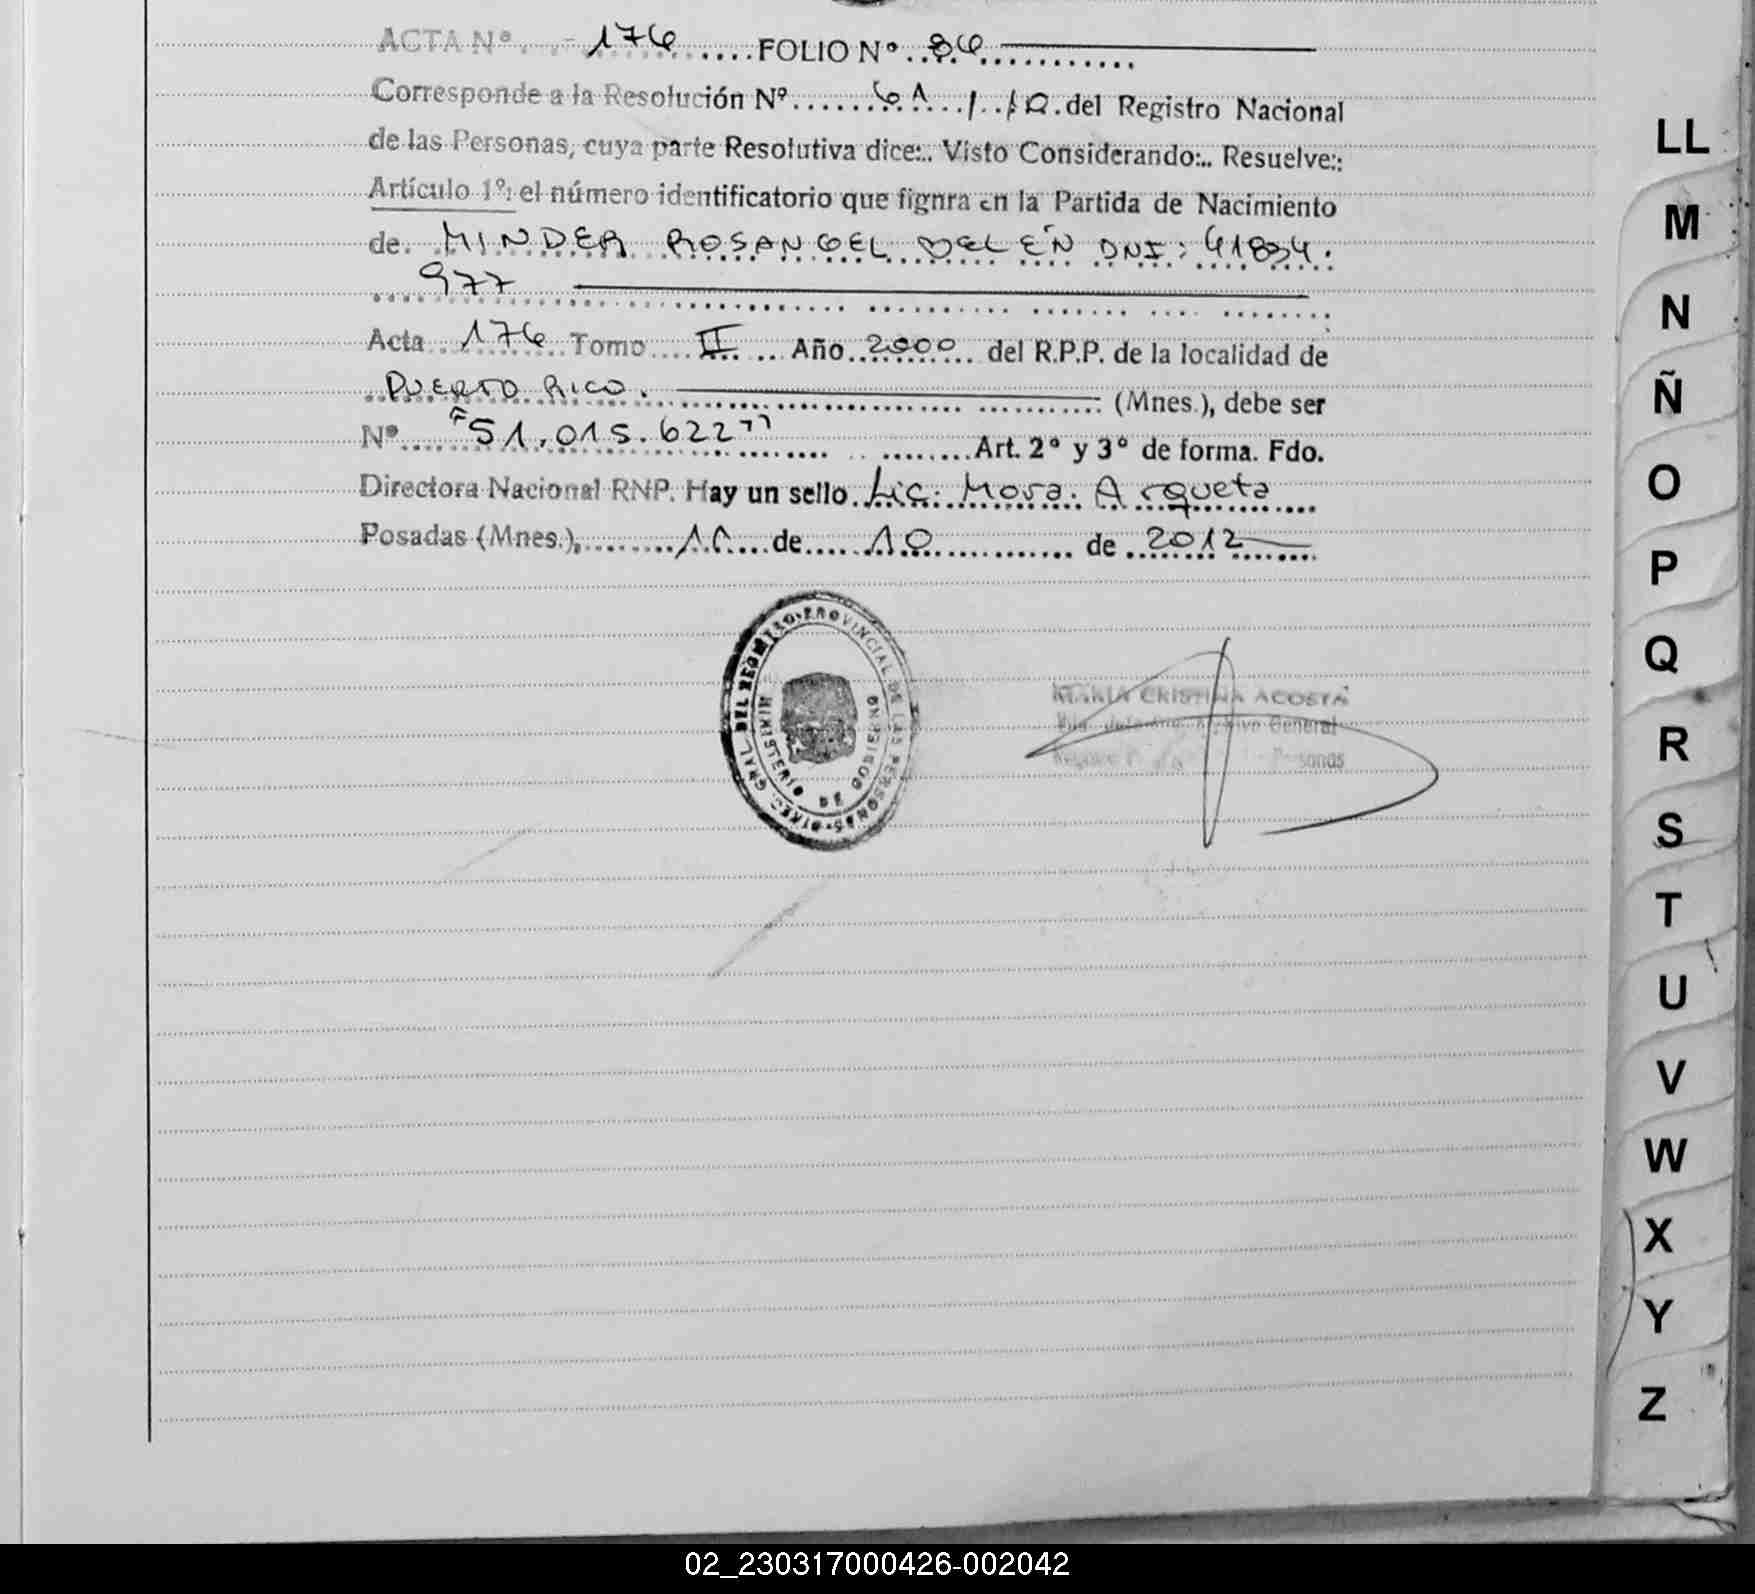 ACTA Nº 176 FOLIO Nº 86
Corresponde a la Resolución Nº 61 / 12 del Registro Nacional
de las Personas, cuya parte Resolutiva dice:.. Visto Considerando:.. Resuelve::
Artículo 1º: el número identificatorio que fignra en la Partida de Nacimiento
de MINDER ROSANGEL BELÉN DNI: 41834.
977
Acta 176 Tomo II Año 2000 del R.P.P. de la localidad de
PUERTO RICO. (Mnes.), debe ser
Nº "51.015.622" Art. 2º y 3º de forma. Fdo.
Directora Nacional RNP. Hay un sello. Lic: Mora. Arqueta
Posadas (Mnes.), de 10 de 2012
DIREC. GRAL. DEL REGISTRO PROVINCIAL DE LAS PERSONAS
MINISTERIO DE GOBIERNO
MARIA CRISTINA ACOSTA
General
Personas
LL
M
N
Ñ
O
P
Q
R
S
T
U
V
W
X
Y
Z
02_230317000426-002042